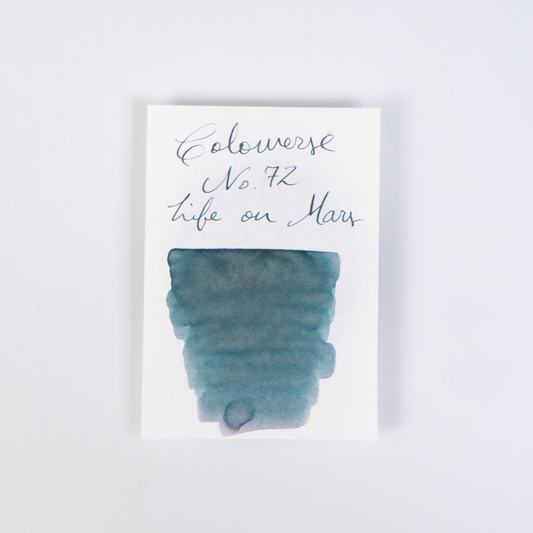 Colorverse
No. 72
Life on Mars